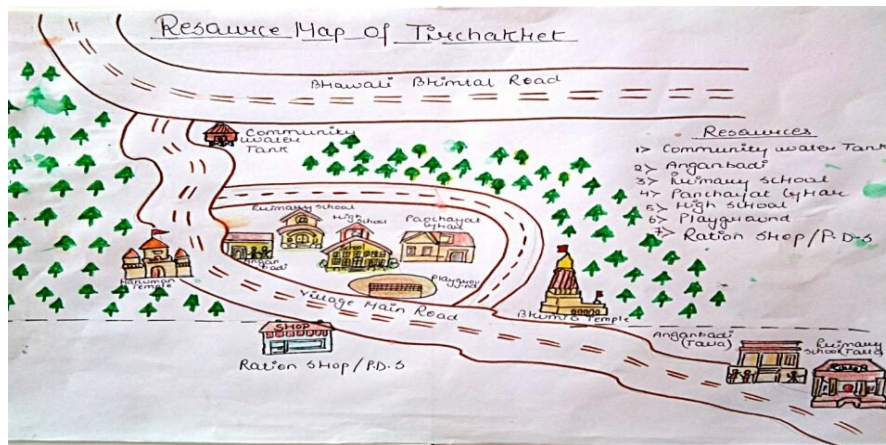 Resource Map Of Tirchakhet
Bhawali Bhimtal Road
Community water
Tank
Resources
1> Community water Tank
2> Anganbadi
3> Primary school
4> Panchayat Ghar
5> High school
6> Playground
7> Ration Shop / P.D.S
Primary school
High
School
Panchayat
Ghar
School
Angan
badi
Playgrou
nd
Hanuman
Temple
Village Main Road
Bhumia Temple
SHOP
Ration Shop / P.D.S
Anganbadi
(Talla)
Primary
school (Talla)